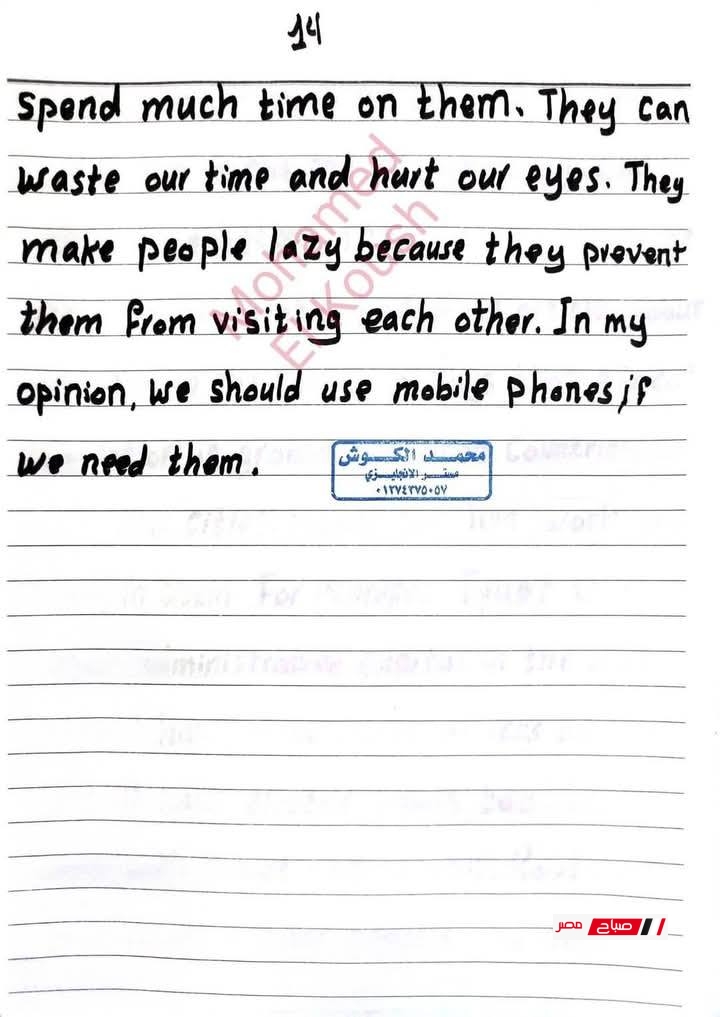 14
spend much time on them. They can
waste our time and hurt our eyes. They
make people lazy because they prevent
them from visiting each other. In my
opinion, we should use mobile phones if
we need them.
محمد الكوش
مستر الانجليزي
٠١٢٧٤٢٧٥٠٥٧
Mohamed
El Koush
صباح مصر